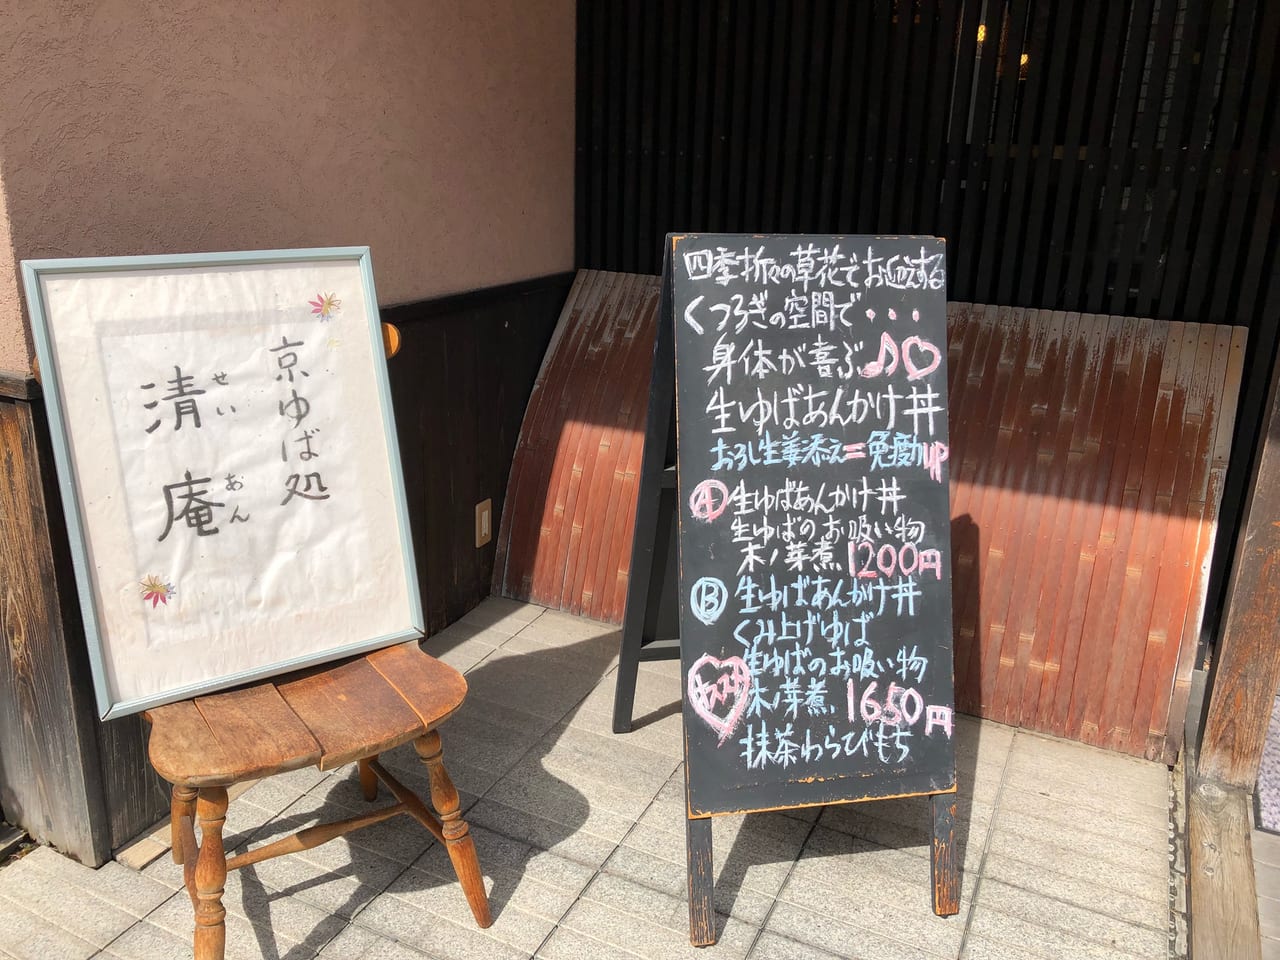 京ゆば処
清庵
せい
あん
四季折々の草花でお迎えする
くつろぎの空間で・・・
身体が喜ぶ♪♡
生ゆばあんかけ丼
おろし生姜添え=免疫力UP
Ⓐ生ゆばあんかけ丼
生ゆばのお吸い物
木ノ芽煮 1200円
Ⓑ生ゆばあんかけ丼
くみ上げゆば
生ゆばのお吸い物
木ノ芽煮 1650円
抹茶わらびもち